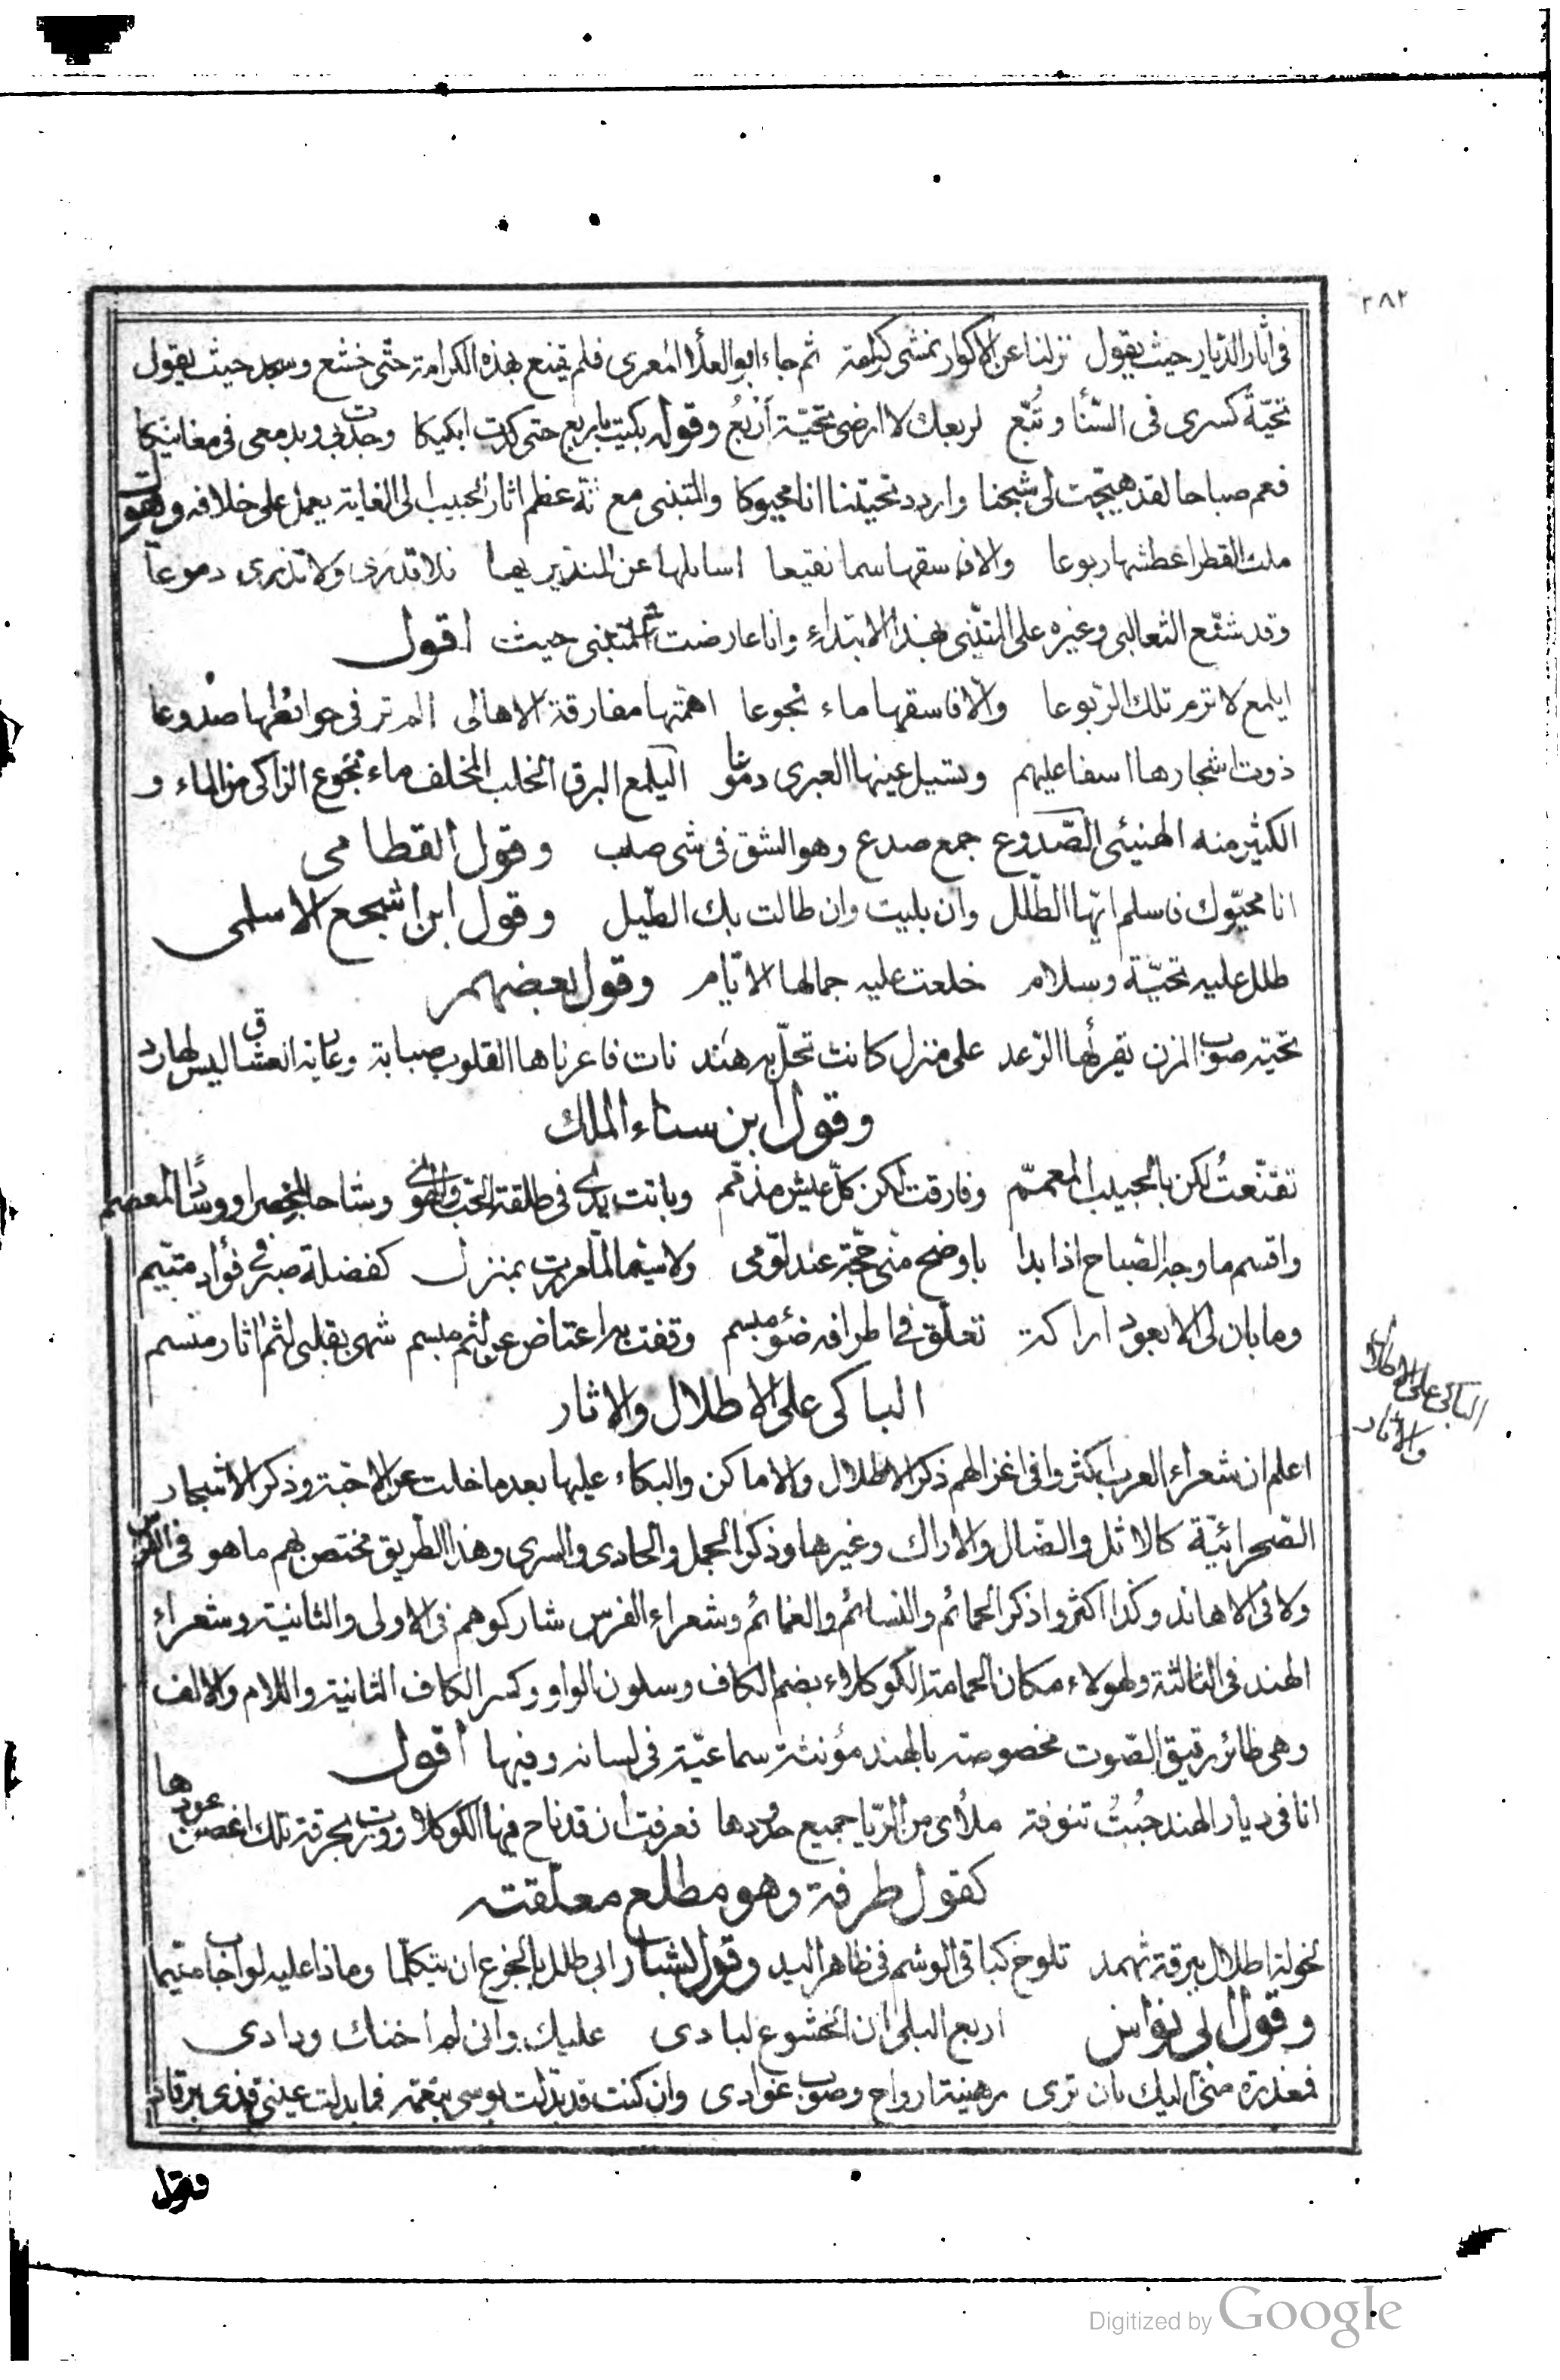 ٢٨٢
فى آثار الديار حيث يقول نزلنا عن الاكوار نمشى كرامة ثم جاء ابو العلا المعرى فلم يقنع بهذه الكرامة حتى خشع وسجد حيث يقول
تحيّة كسرى فى السّنا وتُبّع لربعك لا ارضى تحيّة أربُعُ وقوله بكيت ياربع حتى كدت ابكيكا وجدت بى وبدمعى فى مغانيكا
فعم صباحا لقد هيّجت لى شجنا واردد تحيّتنا انا محيوكا والمتنبى مع انه عظم اثار الحبيب الى الغاية يعمل على خلافه وهو
ملث القطر اعطشها ربوعا والا فاسقها سما نقيعا اسائلها عن المتديريها فلا تدرى ولا تذرى دموعا
وقد شنّع الثعالبى وغيره على المتنبى بهذا الابتداء وانا عارضت المتنبى حيث اقول
ايلمع لا ترم تلك الرّبوعا والّا فاسقها ماء نجوعا اهمّتها مفارقة الاهالى الم تر فى حوائطها صدوعا
ذوت اشجارها اسفا عليهم وتسيل عينها العبرى دموعا اليلمع البرق الخلب المخلف ماء نجوع الزاكى من الماء و
الكثير منه الهنيئى الصّدوع جمع صدع وهو الشق فى شى صلب وقول القطامى
انا محيّوك فاسلم ايّها الطّلل وان بليت وان طالت بك الطّيل وقول ابن اشجع الاسلمى
طلل عليه تحيّة وسلام خلعت عليه جمالها الايّام وقول بعضهم
تحيّة صوب المزن يقرأها الرّعد على منزل كانت تحلّ به هند نات فاعرناها القلوب صبابة وعارية العشاق ليس لها رد
وقول ابن سناء الملك
تقنّعتُ لكن بالحبيب المعمّم وفارقت لكن كلّ عيش مذمّم وباتت يدى فى طاعة الحب والهوى وشاحا لخصر او وسادا لمعصم
واقسم ما وجه الصّباح اذا بدا باوضح منّى حجّة عند لوّمى ولا سيّما لمّا مررت بمنزل كفضلة صبر فى فؤاد متيّم
وما بان لى الا بعود اراكة تعلّق فى اطرافه ضوء مبسم وقفت به اعتاض عن لثم مبسم شهى بقلبى لثم اثار منسم
الباكى على الاطلال والاثار
الباكى على الاطلال
والاثار
اعلم ان شعراء العرب اكثروا فى اغزالهم ذكر الاطلال والاماكن والبكاء عليها بعد ما خلت عن الاحبّة وذكر الاشجار
الصّحرائيّة كالاثل والضال والاراك وغيرها وذكر الجمل والحادى والسرى وهذا الطّريق مختص بهم ما هو فى الفرس
ولا فى الاهاند وكذا اكثروا ذكر الحمائم والنسائم والغمائم وشعراء الفرس شاركوهم فى الاولى والثانية وشعراء
الهند فى الثالثة ولهولاء مكان الحمامة الكوكلاء بضم الكاف وسكون الواو وكسر الكاف الثانية واللام والالف
وهى طائر رقيق الصّوت مخصوصة بالهند مؤنثة سماعيّة فى لسانه وفيها اقول
انا فى ديار الهند جُبتُ تنوفة ملأى من الرّيا جميع حدودها فعرفت ان قد ناح فيها الكوكلا وورت بحرقة تلك اغصن عودها
كقول طرفة وهو مطلع معلّقته
لخولة اطلال ببرقة ثهمد تلوح كباقى الوشم فى ظاهر اليد وقول بشار ابى طلل بالجزع ان يتكلّما وماذا عليه لو اجاب متيّما
وقول ابى نواس اربع البلى ان الخشوع لبادى عليك وانى لم اخنك ودادى
فمعذرة منّى اليك بان ترى رهينة ارواح وصوب غوادى وان كنت قد بدّلت بوسى بنعمة فما بدلت عينى قذى برقاد
وقول
Digitized by Google